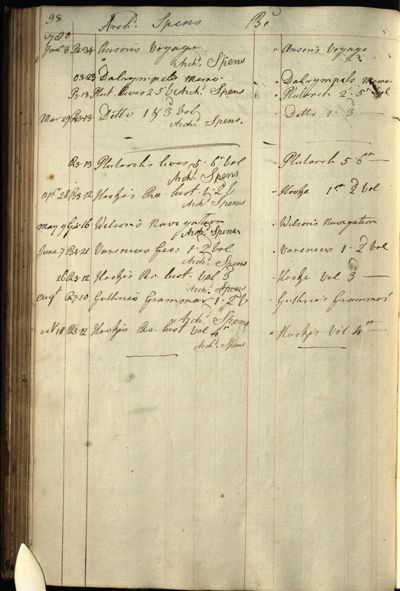 98 Archd. Spens Bd
1780
Janr. 3 R2-34 Anson's Voyage " Anson's Voyage
Archd. Spens
D3-23 Dalrympels Memo. " Dalrympels Memo.
R3-13 Plut. lives 2 5 V Archd. Spens " Plutarch 2d. 5 Vol
Mar 29 R3-13 Ditto 1 & 3d Vol " Ditto 1. 3d
Archd. Spens.
R3-13 Plutarchs lives 5. 6th Vol " Plutarch 5 6th
Archd. Spens
Apl. 28 R3-12 Hooke's Ro. hist. 1. 2d V " Hooke 1st 2d Vol
Archd. Spens
May 9 G4-16 Wilson's Navigation " Wilson's Navigation
Archd. Spens
June 7 R4-21 Varenius Geo: 1. 2d Vol " Varenius 1. 2d Vol
Archd. Spens
26 R3-12 Hooke's Ro. hist. Vol 3d " Hooke Vol 3d
Archd. Spens
Augt. R7-10 Guthrie's Grammar 1. 2d V. " Guthrie's Grammar
Archd. Spens
Oct. 18 R3-12 Hooke's Ro. hist Vol 4th " Hooke's Vol 4th
Archd. Spens